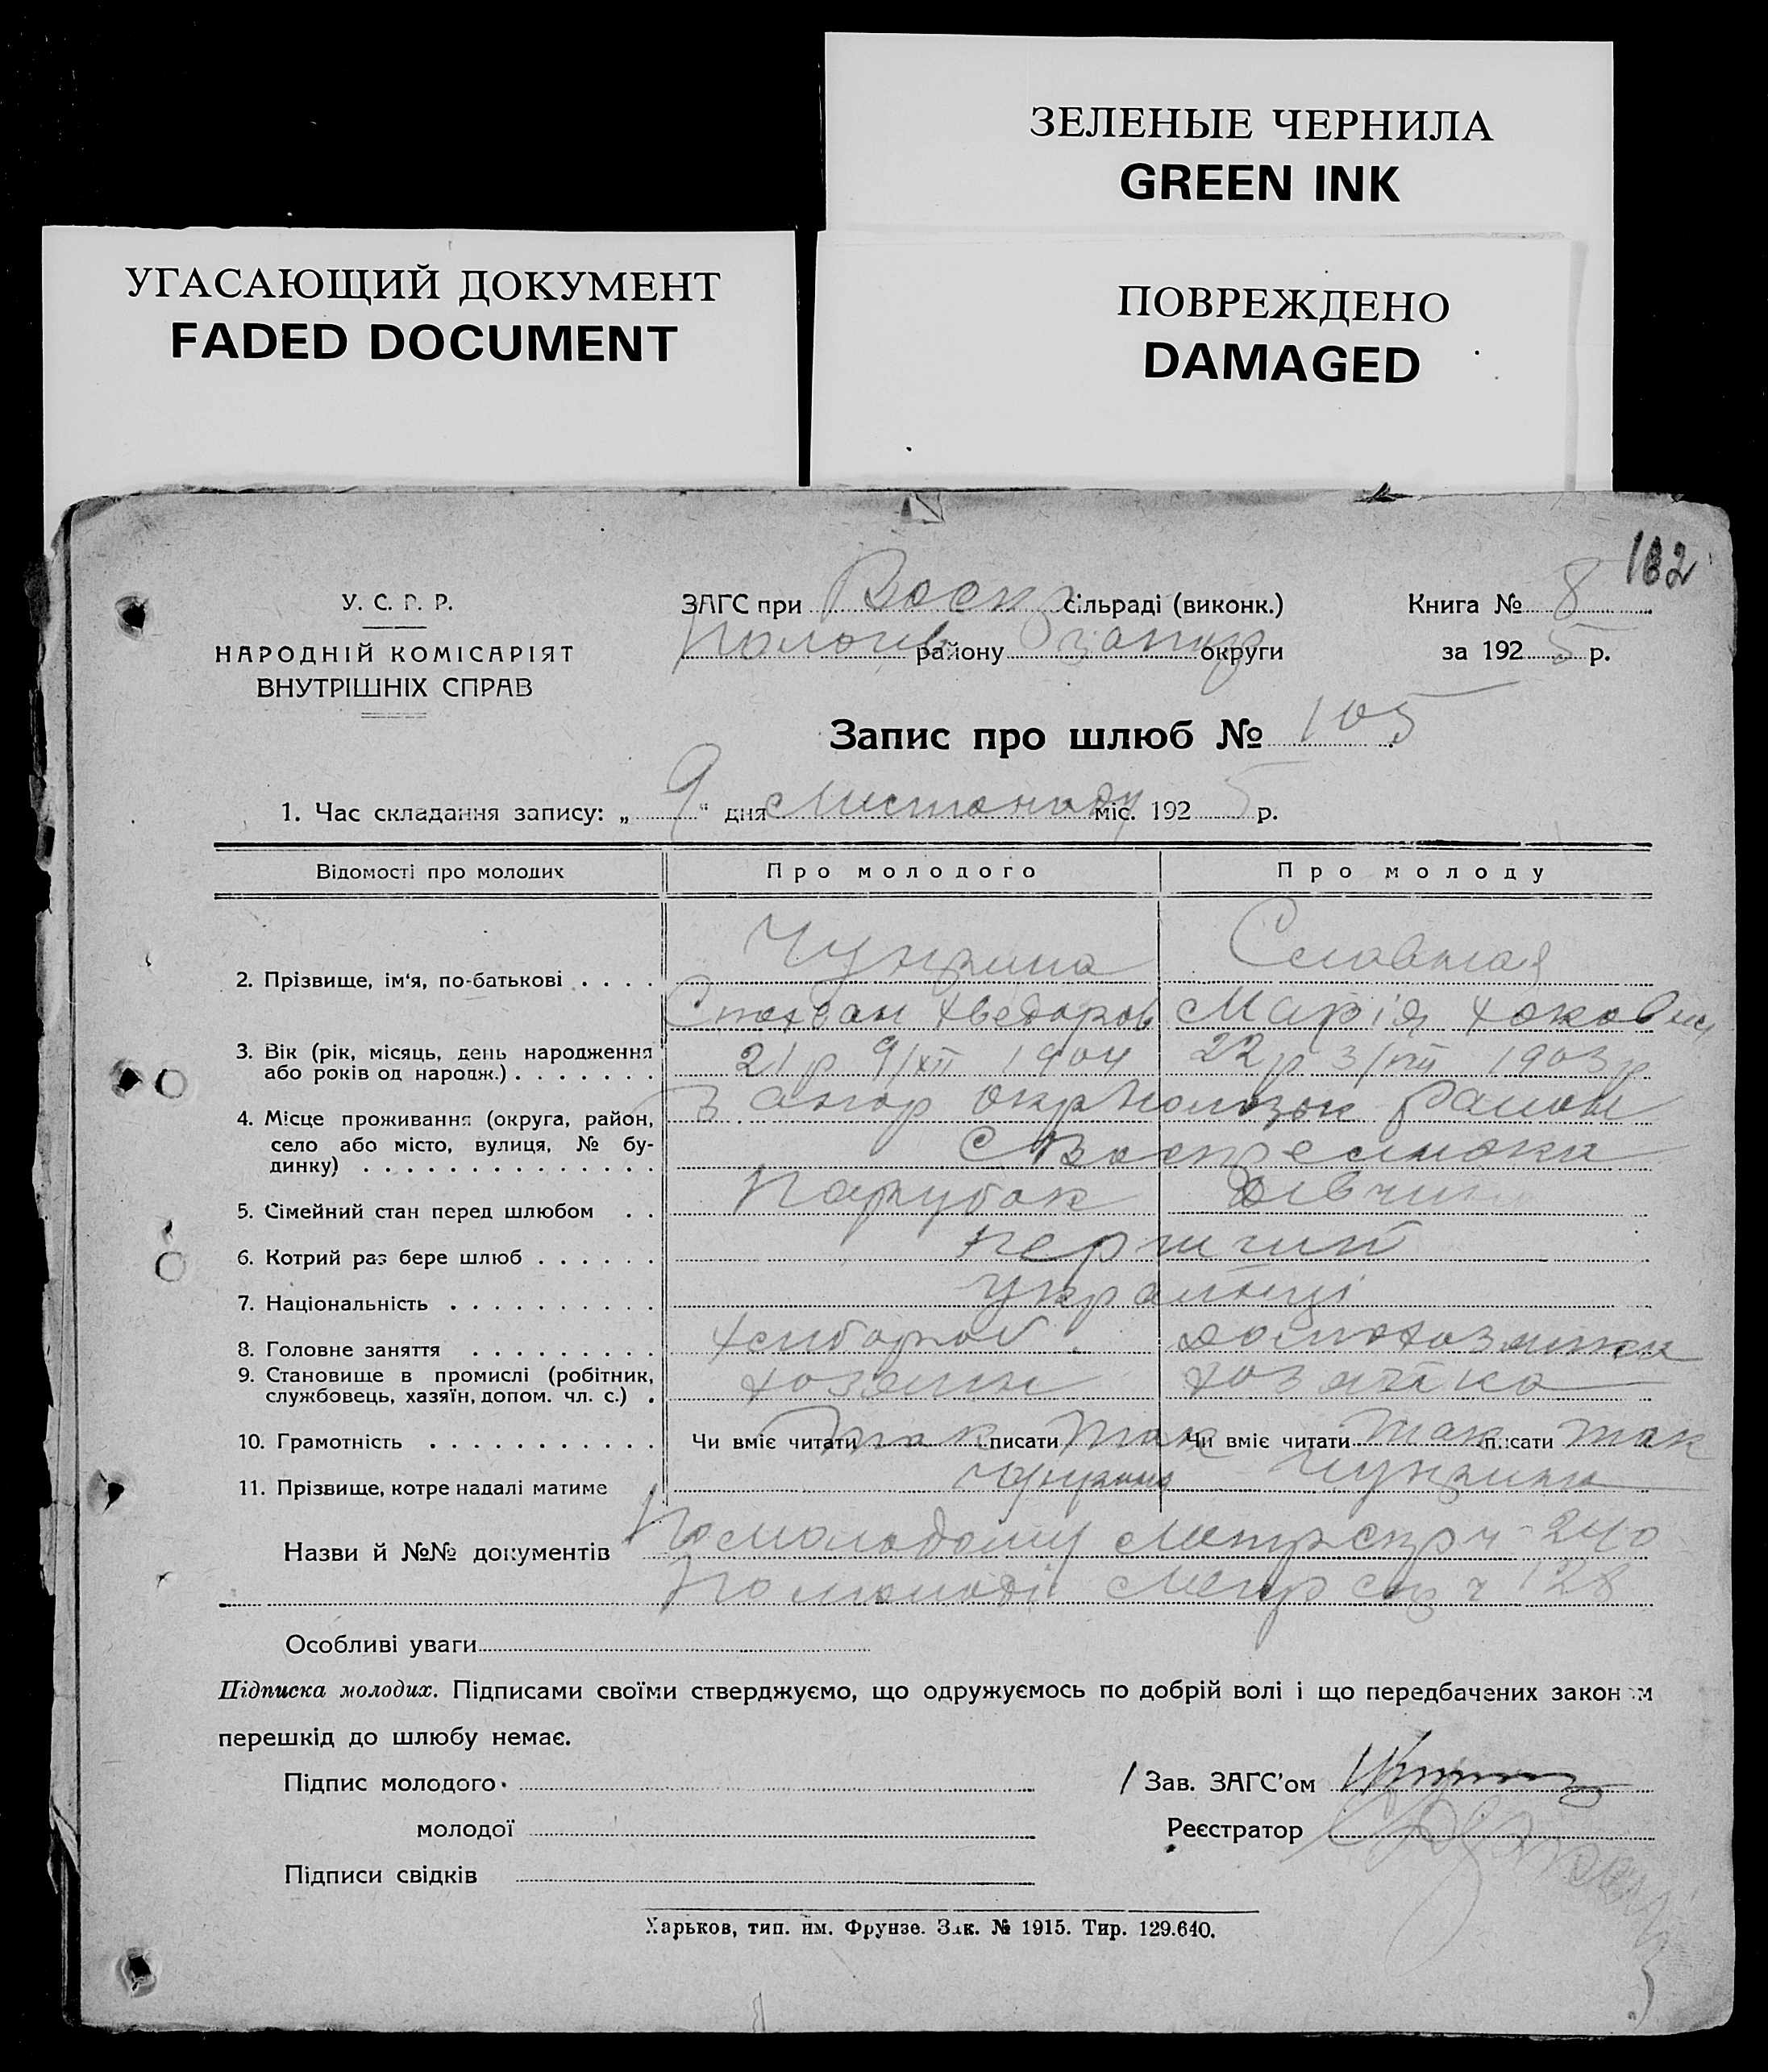 ЗЕЛЕНЫЕ ЧЕРНИЛА
GREEN INK
УГАСАЮЩИЙ ДОКУМЕНТ
FADED DOCUMENT
ПОВРЕЖДЕНО
DAMAGED
132
У. С. Р. Р.
НАРОДНІЙ КОМІСАРІЯТ
ВНУТРІШНІХ СПРАВ
ЗАГС при Воскр сільраді (виконк.)
Пологів району Запор округи
Книга № 8
за 1925 р.
Запис про шлюб № 105
1. Час складання запису: „ 9 “ дня Листопаду міс. 1925 р.
Відомості про молодих Про молодого Про молоду
2. Прізвище, ім'я, по-батькові . . . . Чуприна Славная
Степан Хведоров Марія
3. Вік (рік, місяць, день народження
або років од народж.) . . . . . . . 21 р 9/XII 1904 22 р 3/VIII 1903 р
4. Місце проживання (округа, район,
село або місто, вулиця, № бу-
динку) . . . . . . . . . . . . . .
Запор окр район
с Воскресенка
5. Сімейний стан перед шлюбом . . Парубок Дівчина
6. Котрий раз бере шлюб . . . . . . перший
7. Національність . . . . . . . . . . українці
8. Головне заняття . . . . . . . . . Хлібороб домохозяйка
9. Становище в промислі (робітник,
службовець, хазяїн, допом. чл. с.) . хозяин хозяйка
10. Грамотність . . . . . . . . . . . Чи вміє читати так писати так Чи вміє читати так писати так
11. Прізвище, котре надалі матиме Чуприна Чуприна
Назви й №№ документів По молодому Метр ч 240
По молоді Метр ч 128
Особливі уваги
Підписка молодих. Підписами своїми стверджуємо, що одружуємось по добрій волі і що передбачених законом
перешкід до шлюбу немає.
Підпис молодого
Зав. ЗАГС'ом
молодої
Реєстратор
Підписи свідків
Харьков, тип. им. Фрунзе. Зак. № 1915. Тир. 129.640.